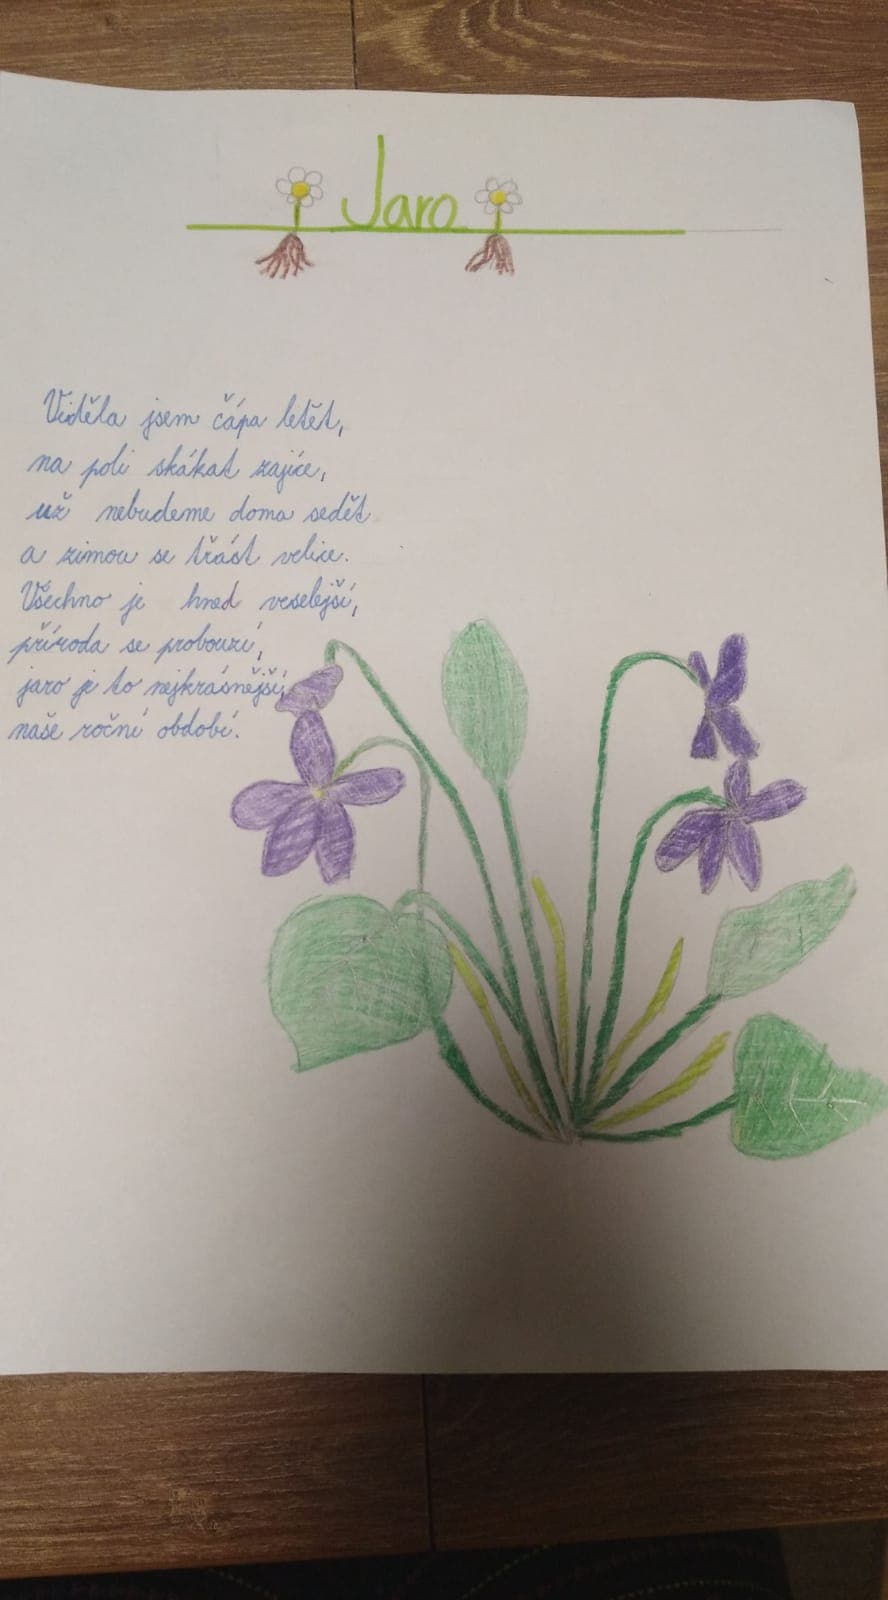 Jaro
Viděla jsem čápa letět,
na poli skákat zajíce,
už nebudeme doma sedět
a zimou se třást velice.
Všechno je hned veselejší,
příroda se probouzí,
jaro je to nejkrásnější,
naše roční období.